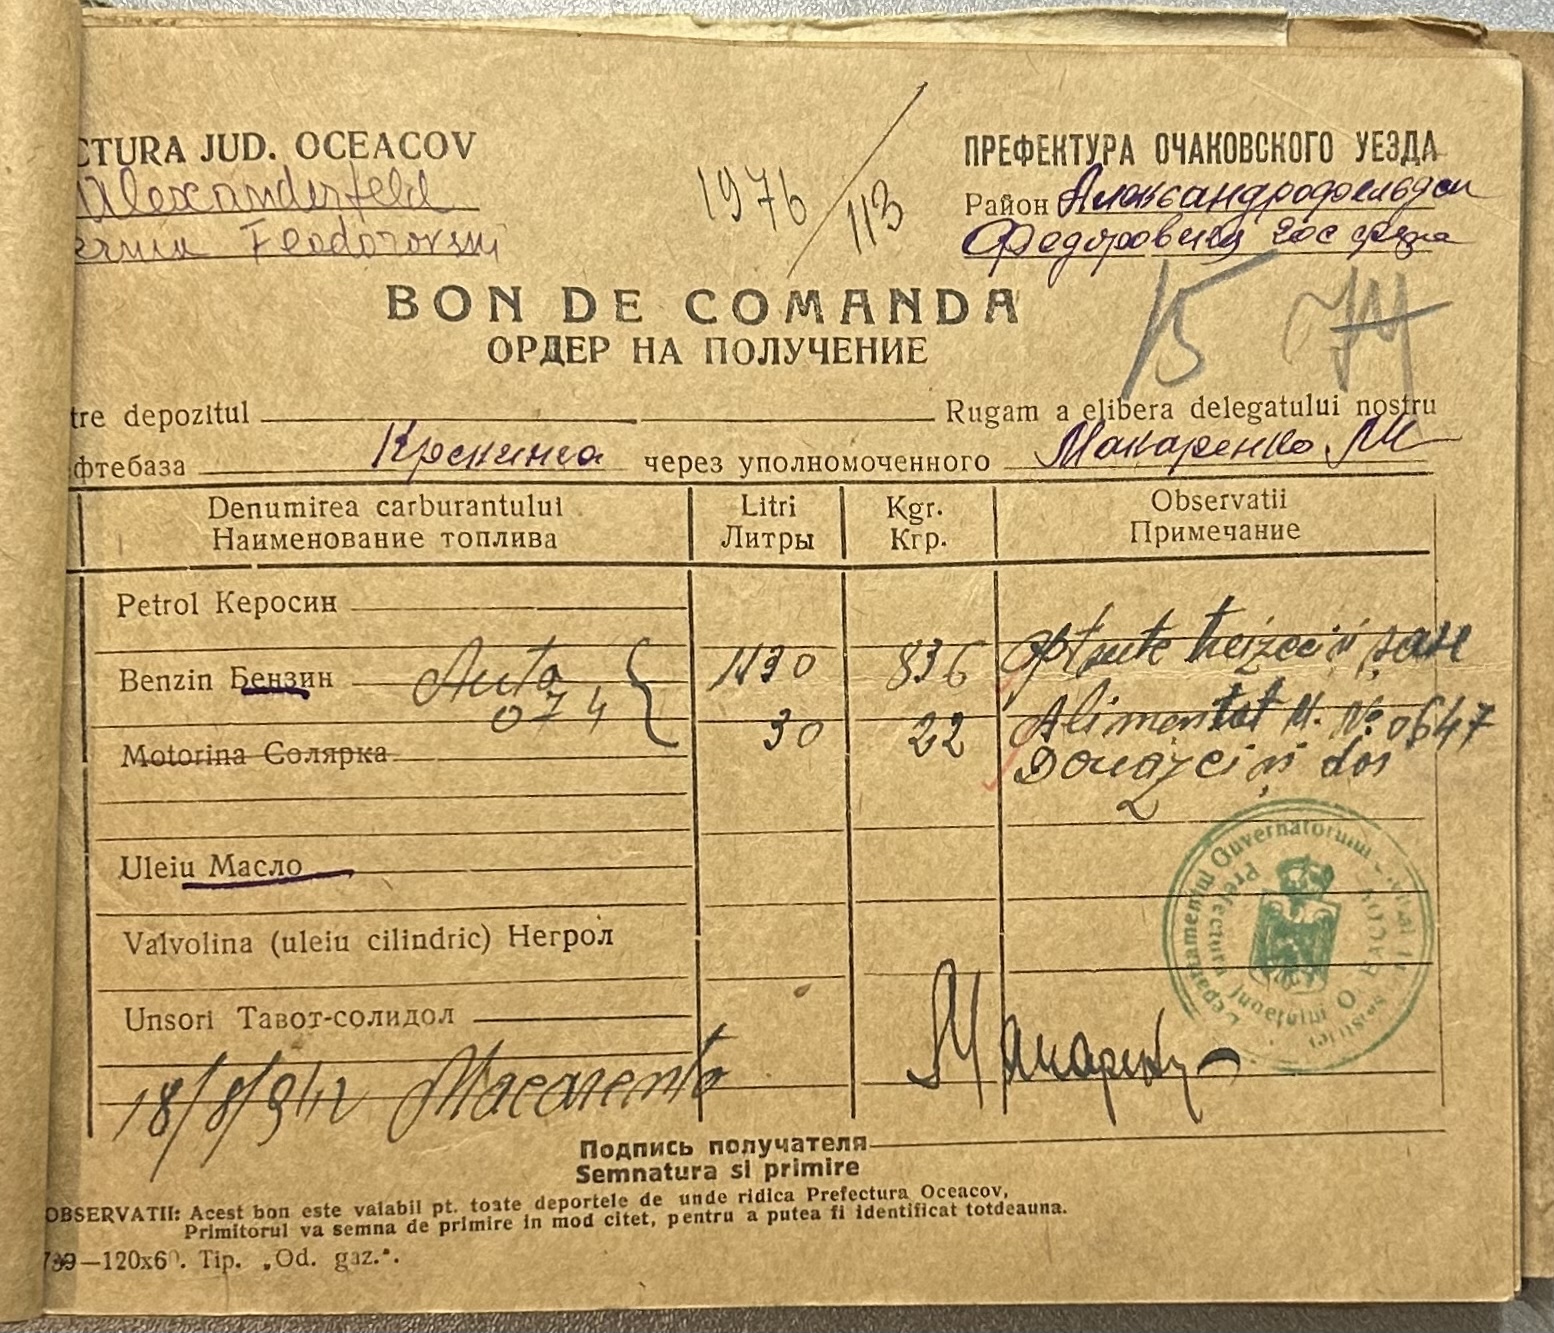 CTURA JUD. OCEACOV
Alexanderfeld
Feodorovski
1976/113
ПРЕФЕКТУРА ОЧАКОВСКОГО УЕЗДА
Район Александрофельдск
Федоровская гос
BON DE COMANDA
ОРДЕР НА ПОЛУЧЕНИЕ
15
tre depozitul Rugam a elibera delegatului nostru
фтебаза Крекинга через уполномоченного Макаренко
Denumirea carburantului Litri Kgr. Observatii
Наименование топлива Литры Кгр. Примечание
Petrol Керосин
Benzin Бензин Auto 1130 836 Opt sute treizeci și șase
074 30 22 Alimentat M. No 0647
Motorina Солярка Douăzeci și doi
Uleiu Масло
Valvolina (uleiu cilindric) Негрол
Unsori Тавот-солидол
Guvernatorului
Prefectura
18/8/942 Macarenko Макаренко
Подпись получателя
Semnatura si primire
OBSERVATII: Acest bon este valabil pt. toate deportele de unde ridica Prefectura Oceacov,
Primitorul va semna de primire in mod citet, pentru a putea fi identificat totdeauna.
—120x60. Tip. „Od. gaz.".